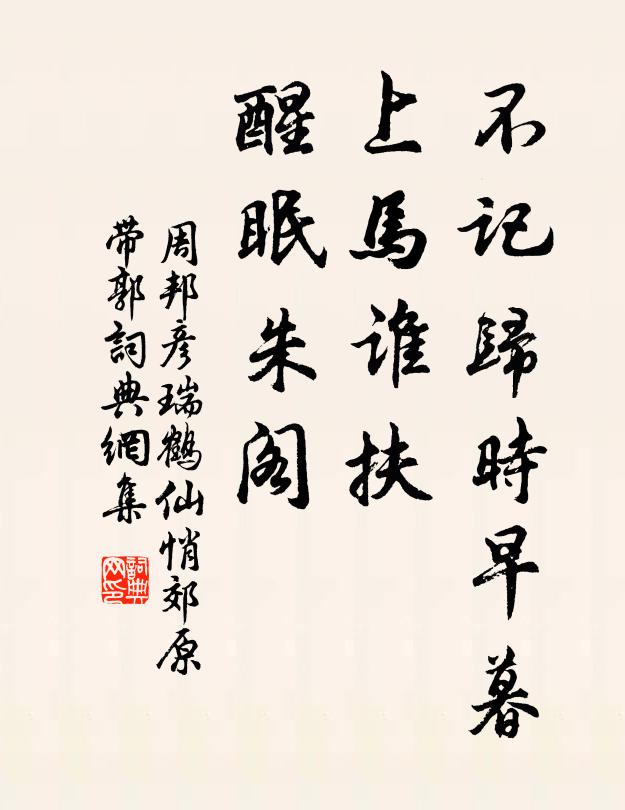 不记歸時早暮
上馬谁扶
醒眠朱阁
周邦彦瑞鶴仙悄郊原
带郭詞典網集
詞典
网印